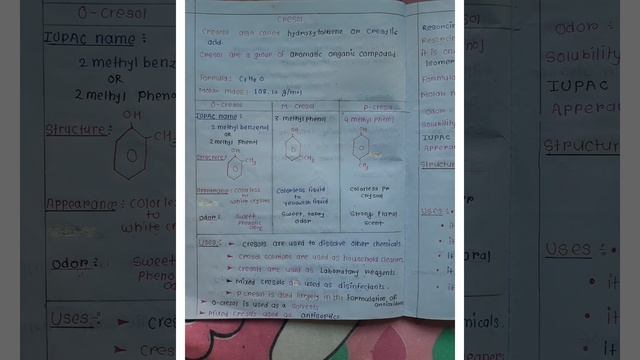 Cresol
Cresols also called hydroxytoluene or cresylic
acid.
Cresol are a group of aromatic organic compound.
Formula: C7 H8 O
Molar mass: 108.10 g/mol
O-cresol
M-cresol
P-cresol
IUPAC name:
2 methyl benzenol
OR
2 methyl phenol
3-methylphenol
4 methyl phenol
Structure:
OH
CH3
OH
CH3
OH
CH3
Appearance: colorless
to
white crystals
Colorless liquid
to
Yellowish liquid
Colorless
crystal
Odor: Sweet,
Phenolic
Sweet, tarry
odor
Strong, Floral
Scent
Uses:
➤ Cresols are used to dissolve other chemicals
➤ Cresol solutions are used as household cleaners
➤ Cresols are used as Laboratory reagents.
➤ Mixed cresols are used as disinfectants.
➤ P cresol is used largely in the formulation of
antioxidants
➤ O-cresol is used as a solvents
➤ Mixed cresols used as antiseptics
O-Cresol
IUPAC name:
2 methyl benz
OR
2 methyl pheno
Structure:
OH
CH3
Appearance: color
to
white cr
Odor: Sweet
Pheno
Uses:
➤ Cres
➤ Cres
Resorcin
It is
Isomer
Formula
Molar
Odor:
Solubility
IUPAC
Appearan
Structur
Uses:
• it
• it
• it
• it
sol
nol
Odor:
Solubility
IUPAC
Apperan
Structur
Uses:
• it
micals.
• it
ers